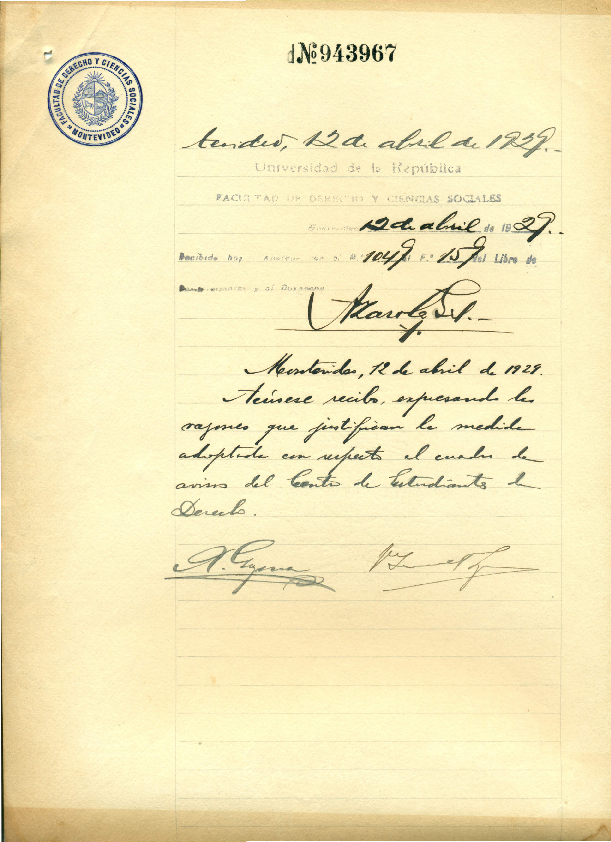 dNo 943967
FACULTAD DE DERECHO Y CIENCIAS SOCIALES
MONTEVIDEO
12 de abril de 1929.-
Universidad de la República
FACULTAD DE DERECHO Y CIENCIAS SOCIALES
12 de abril de 1929.-
Recibido hoy 1049 al F.o 159 del Libro de
Montevideo, 12 de abril de 1929.
Acúsese recibo, expresando las
razones que justifican la medida
adoptada con respecto al cuadro de
avisos del Centro de Estudiantes de
Derecho.